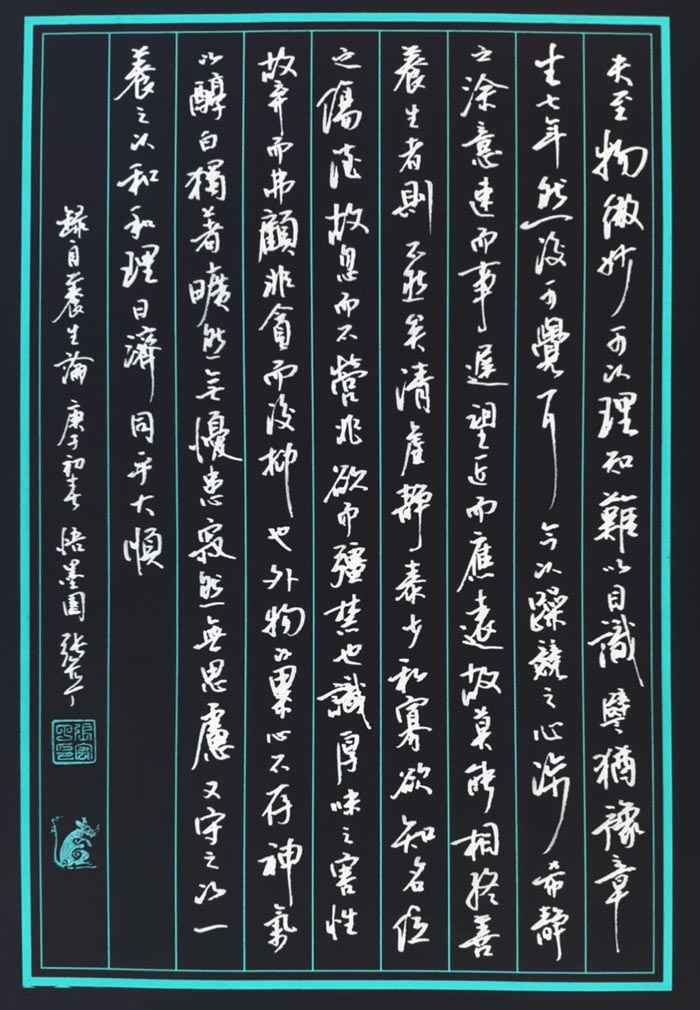 夫至物微妙可以理知難以目識譬猶豫章
生七年然後可覺耳今以躁競之心涉希靜
之涂意速而事遲望近而應遠故莫能相終善
養生者則不然矣清虛靜泰少私寡欲知名位
之傷德故忽而不營非欲而彊禁也識厚味之害性
故弃而弗顧非貪而後抑也外物以累心不存神氣
以醇白獨著曠然無憂患寂然無思慮又守之以一
養之以和和理日濟同乎大順
錄自養生論庚子初春悟墨園張